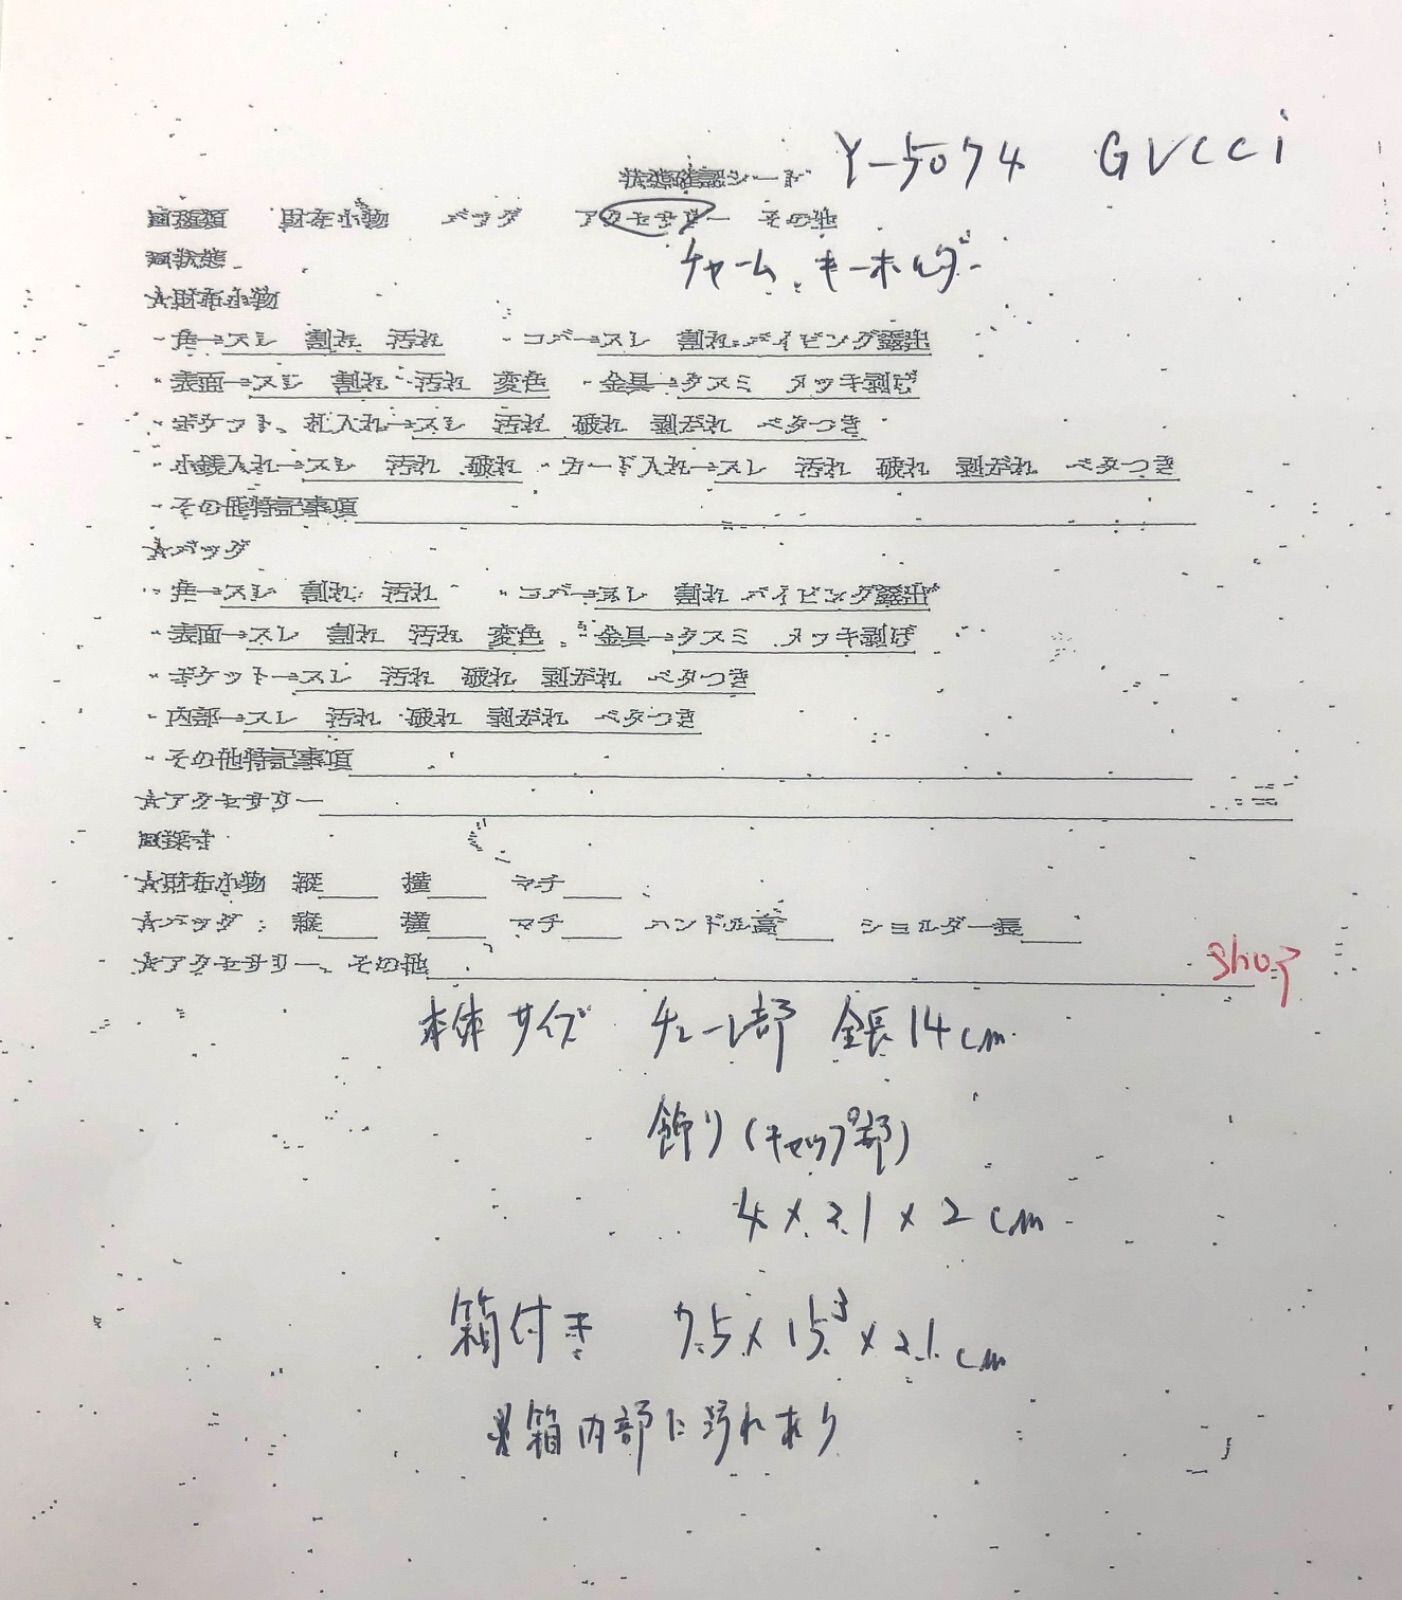 Y-5074 GUCCI
状態確認シート
種類 財布小物 バッグ アクセサリー その他
状態
チャーム、キーホルダー
☆財布小物
・角→スレ 割れ 汚れ ・コバ→スレ 割れ パイピング露出
・表面→スレ 割れ 汚れ 変色 ・金具→クスミ メッキ剥げ
・ポケット、札入れ→スレ 汚れ 破れ 剥がれ ベタつき
・小銭入れ→スレ 汚れ 破れ ・カード入れ→スレ 汚れ 破れ 剥がれ ベタつき
・その他特記事項
☆バッグ
・角→スレ 割れ 汚れ ・コバ→スレ 割れ パイピング露出
・表面→スレ 割れ 汚れ 変色 ・金具→クスミ メッキ剥げ
・ポケット→スレ 汚れ 破れ 剥がれ ベタつき
・内部→スレ 汚れ 破れ 剥がれ ベタつき
・その他特記事項
☆アクセサリー
採寸
☆財布小物 縦 横 マチ
☆バッグ:縦 横 マチ ハンドル高 ショルダー長
☆アクセサリー、その他
shop
本体サイズ チェーン部 全長14cm
飾り(キャップ部)
4×2.1×2cm
箱付き 7.5×15.3×2.1cm
箱内部に汚れあり